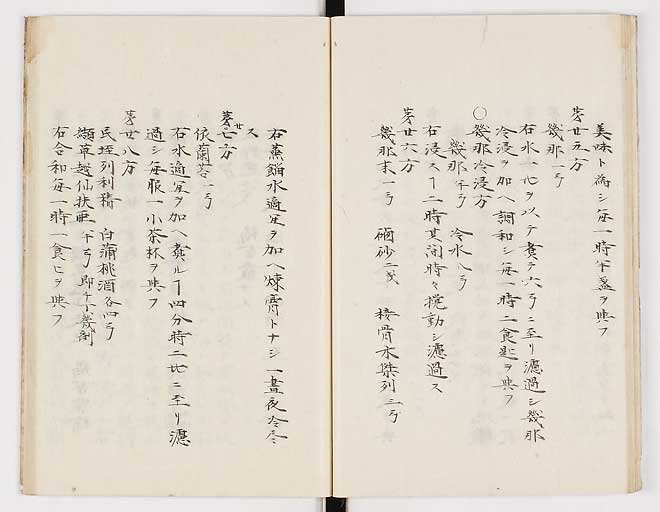 美味ト為シ毎一時半盞ヲ與フ
第廿五方
幾那一弓
石水一匕ヲ以テ煮テ六弓ニ至リ濾過シ幾那
冷浸ヲ加ヘ調和シ毎一時二食匙ヲ與フ
〇幾那冷浸方
幾那半弓 冷水八弓
石浸スヿ二時其間時々攪動シ濾過ス
第廿六方
幾那末一弓 硇砂二戔 接骨木煠列三弓
石蒸餾水適宜ヲ加ヘ煉膏トナシ一晝夜令尽
ス
第廿七方
依蘭苔一弓
石水適宜ヲ加ヘ煮ルヿ四分時二匕ニ至リ濾
過シ毎服一小茶杯ヲ與フ
第廿八方
民垤列利精 白蒲桃酒各四弓
纈草越幾仙扶亜半弓 即十小幾剤
石合和毎一時一食匕ヲ與フ